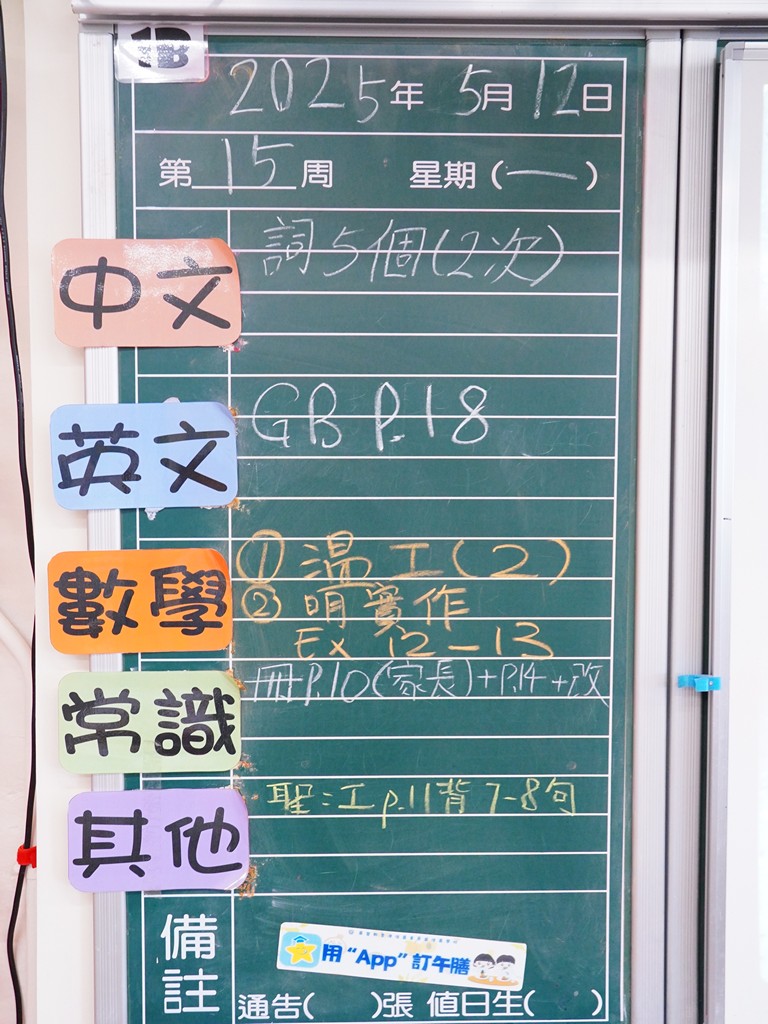 1B
2025年 5月 12日
第 15 周 星期(一)
中文
詞5個(2次)
英文
GB P.18
數學
① 溫工(2)
② 明實作
Ex 12-13
常識
冊P.10(家長)+P.14+改
其他
聖:工p.11背7-8句
備註
用"App"訂午膳
通告( )張 值日生( )